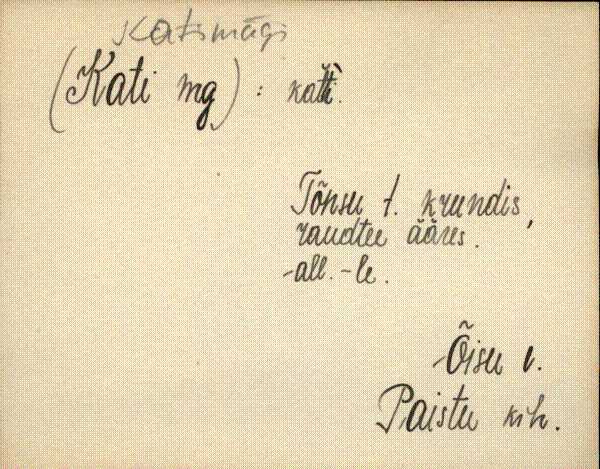 Katsmägi
(Kati mg) : katti.
Tõnsu t. krundis,
raudtee ääres.
-all. -le.
Õisu v.
Paistu kih.